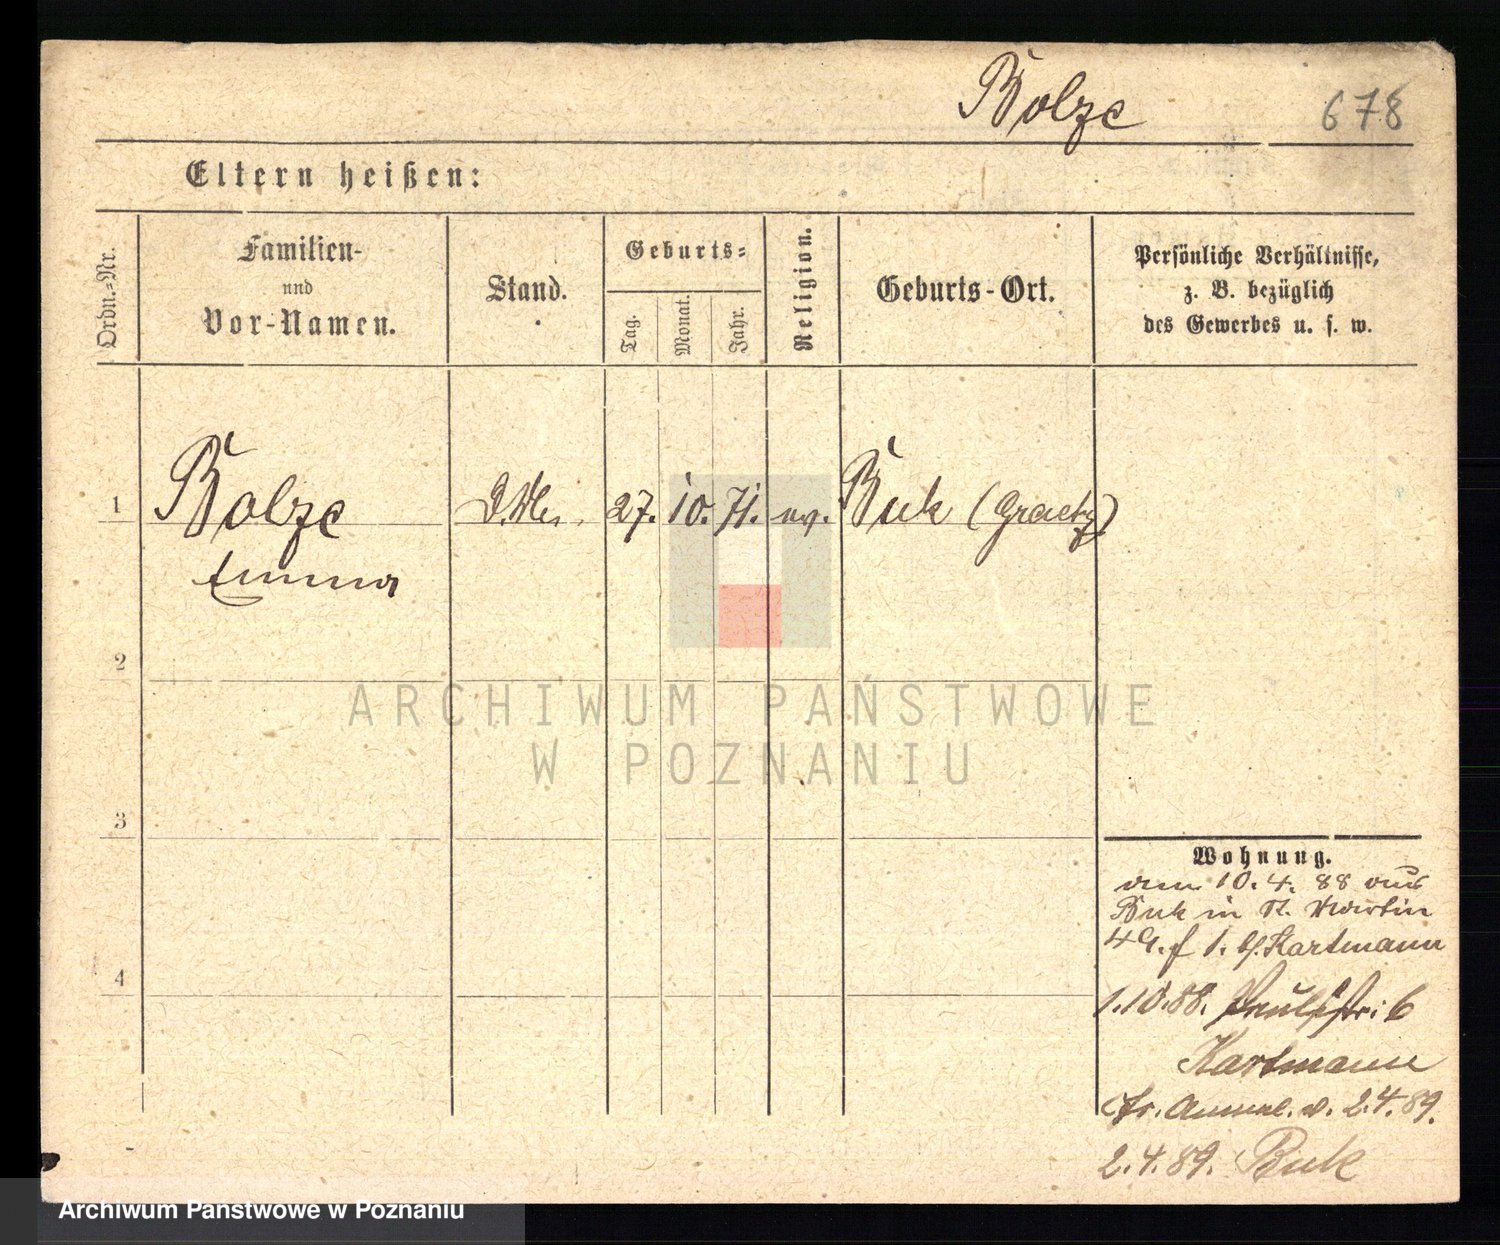 Bolze
678
Eltern heißen:
Ordn.-Nr.
Familien-
und
Vor-Namen.
Stand.
Geburts-
Tag.
Monat.
Jahr.
Religion.
Geburts-Ort.
Persönliche Verhältnisse,
z. B. bezüglich
des Gewerbes u. s. w.
1 Bolze 27. 10. 71. ev. Buk (Graetz)
Emma
2
3
4
Wohnung.
vom 10. 4. 88 aus
Buk in St. Martin
49. f 1. b/. Kartmann
1.10.88. Paulistr: 6
Kartmann
fr. Anmel. v. 2.4.89.
2.4.89. Buk
ARCHIWUM PAŃSTWOWE
W POZNANIU
Archiwum Państwowe w Poznaniu